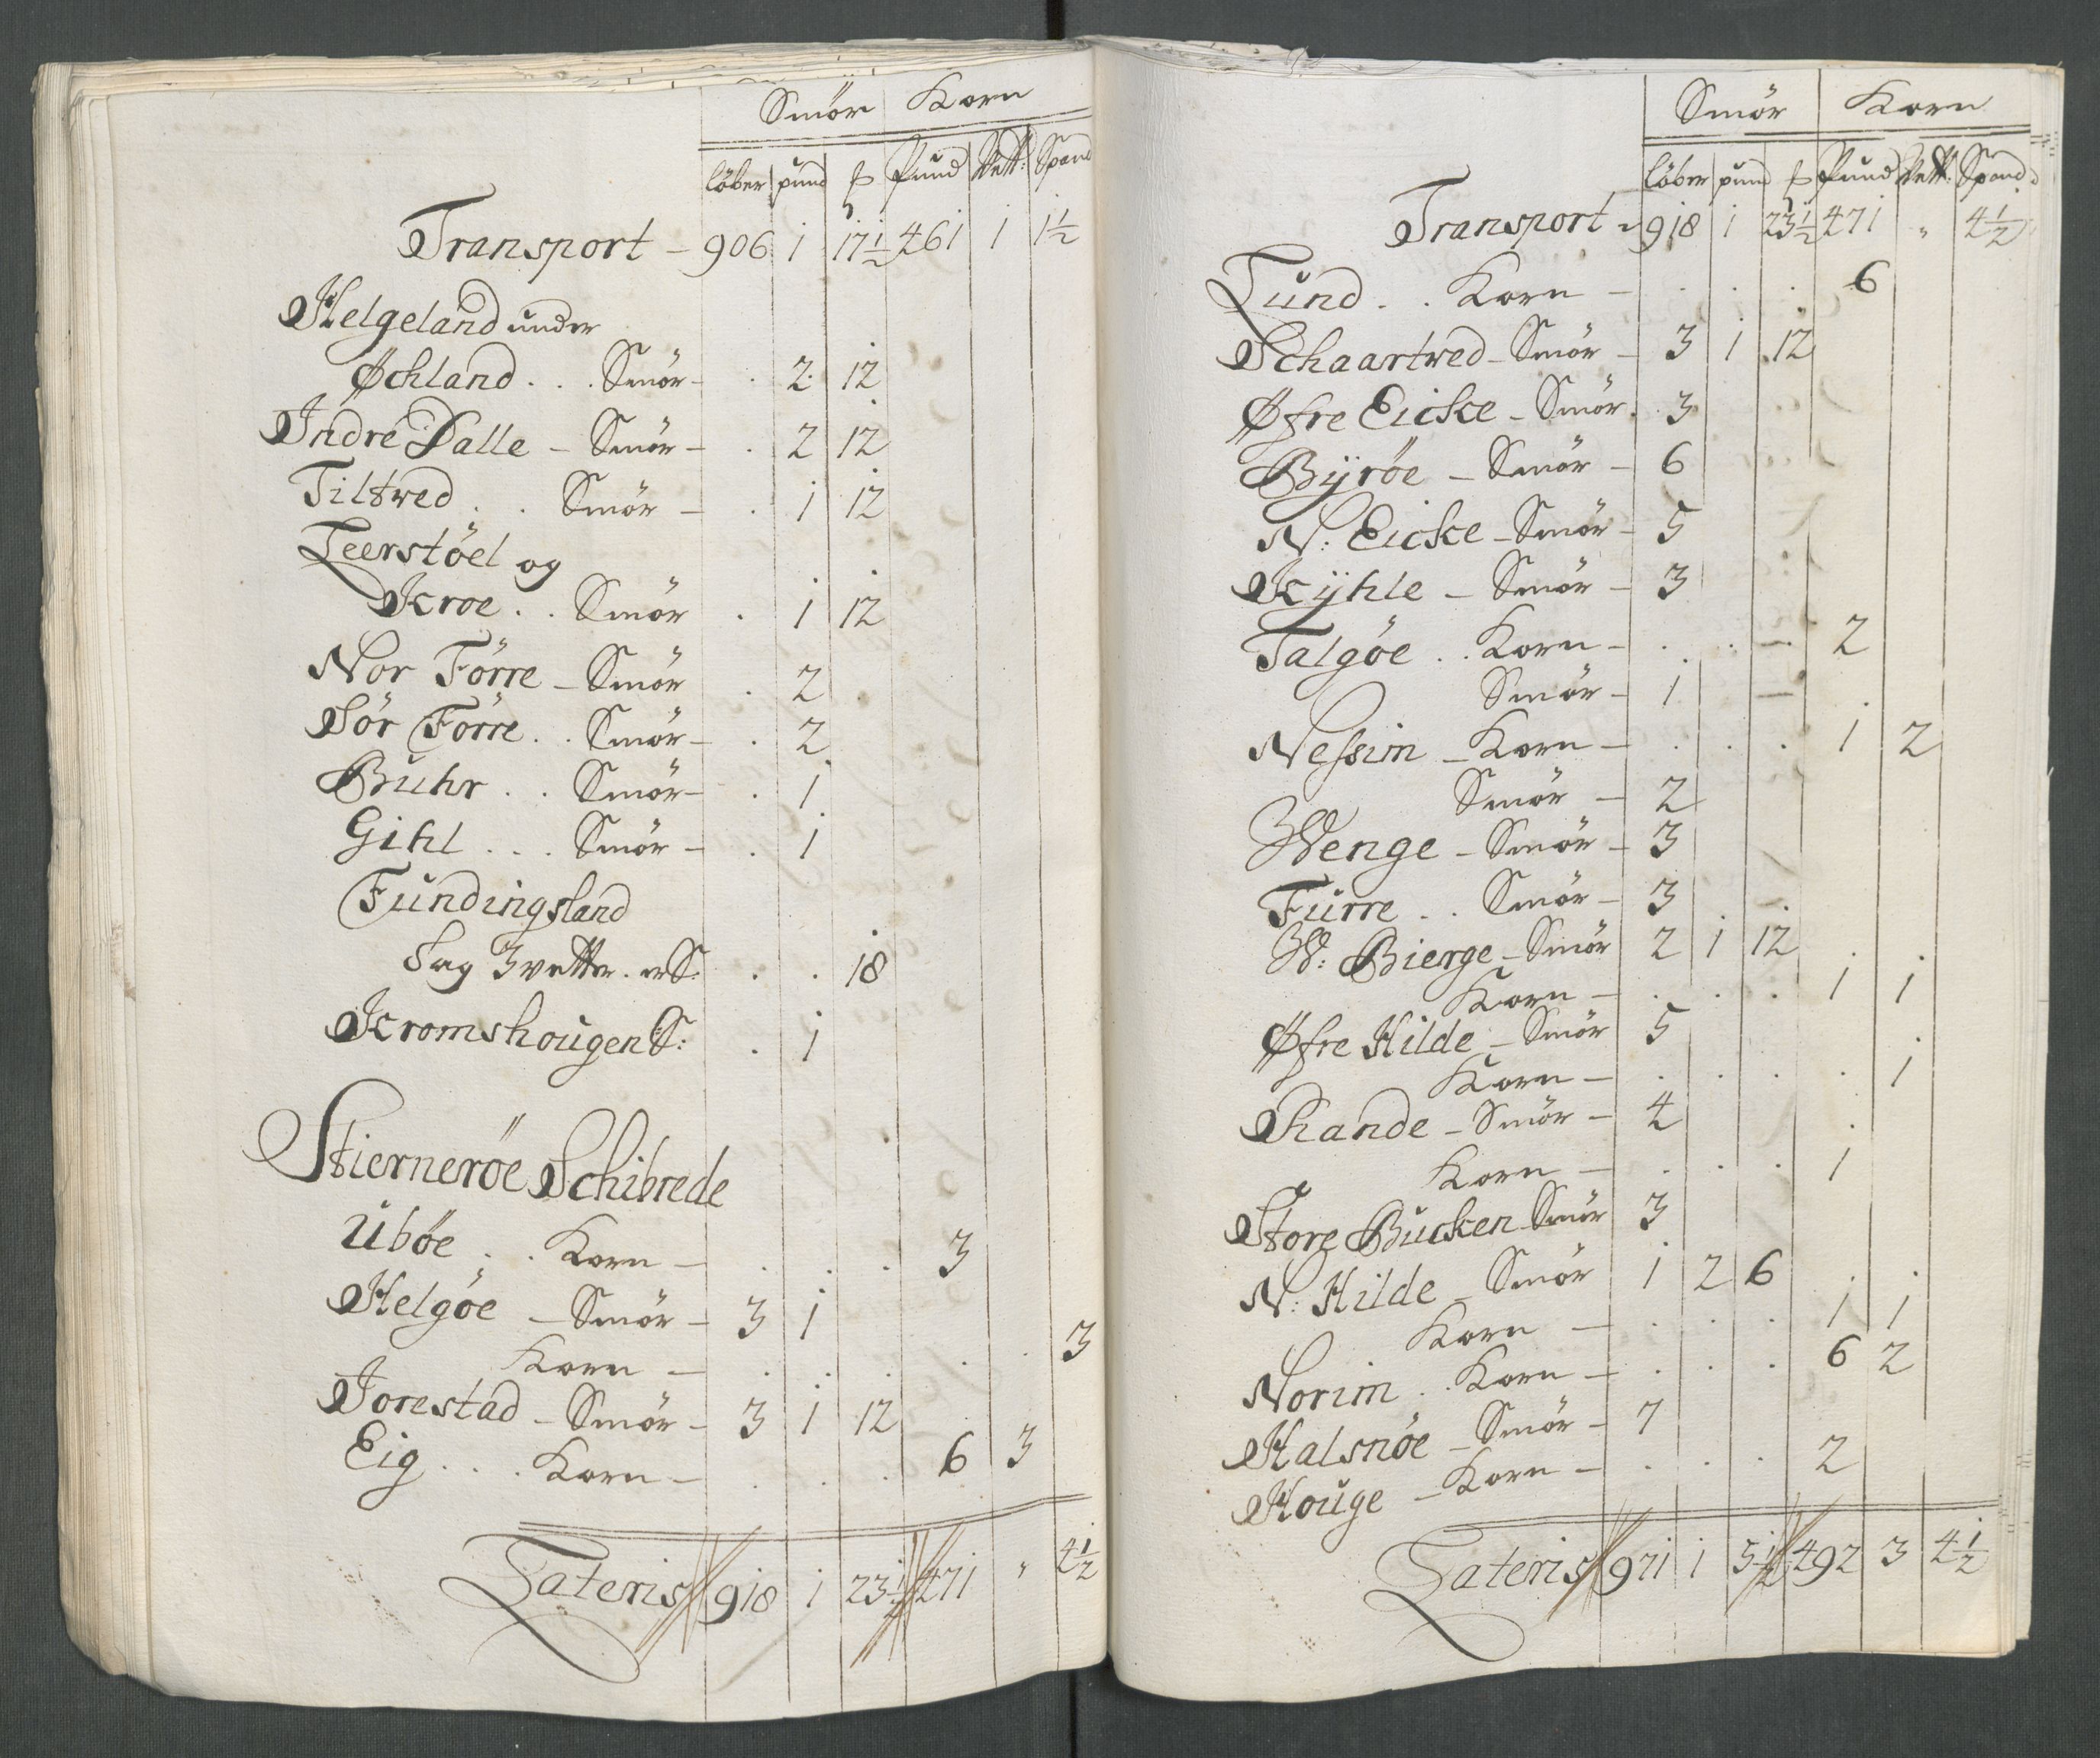 Smör Korn
löber pund ℔ Pund Vett: Spand
Transport – 906 1 17½ 461 1 1½
Helgeland under
Øchland . . . Smör – . 2 12
Indre Dalle – Smör – . 2 12
Tiltved . . Smör – . 1 12
Leerstöel og
Kroe . . Smör . 1 12
Nor Förre – Smör . 2
Sör Förre . . Smör – . 2
Buhr . . Smör – . 1
Gihl . . . Smör – . 1
Fundingsland
Sag 3 vetter . er S: . . 18
Kromshougen S: . 1
Stierneröe Schibrede
Uböe . . Korn – . . . 3
Helgöe – Smör – 3 1
Korn – . . . . . 3
Jorestad – Smör – 3 1 12
Eig . . . Korn – . . . 6 3
Lateris 918 1 23½ 471 " 4½
Smör Korn
löber pund ℔ Pund Vett: Spand
Transport – 918 1 23½ 471 " 4½
Lund . . Korn – . . . 6
Schaartved – Smör – 3 1 12
Øfre Eicke – Smör . 3
Bÿröe – Smör – 6
N: Eicke – Smör – 5
Kÿhle – Smör – 3
Talgöe . . Korn – . . – 2
Smör – 1 –
Nessim – Korn – . . . 1 2
Smör – 2
Wenge – Smör – 3
Furre . . Smör – 3
W: Bierge – Smör 2 1 12
Korn – . . . 1 1
Øfre Hilde – Smör 5
Korn – . . . . 1
Rande – Smör – 4
Korn – . . . 1
Store Bucken Smör 3
N: Hilde – Smör 1 2 6
Korn – . . . 1 1
Norim . . Korn – . . . 6 2
Halsnöe – Smör – 7
Houge – Korn – . . . 2
Lateris 971 1 5½ 492 3 4½